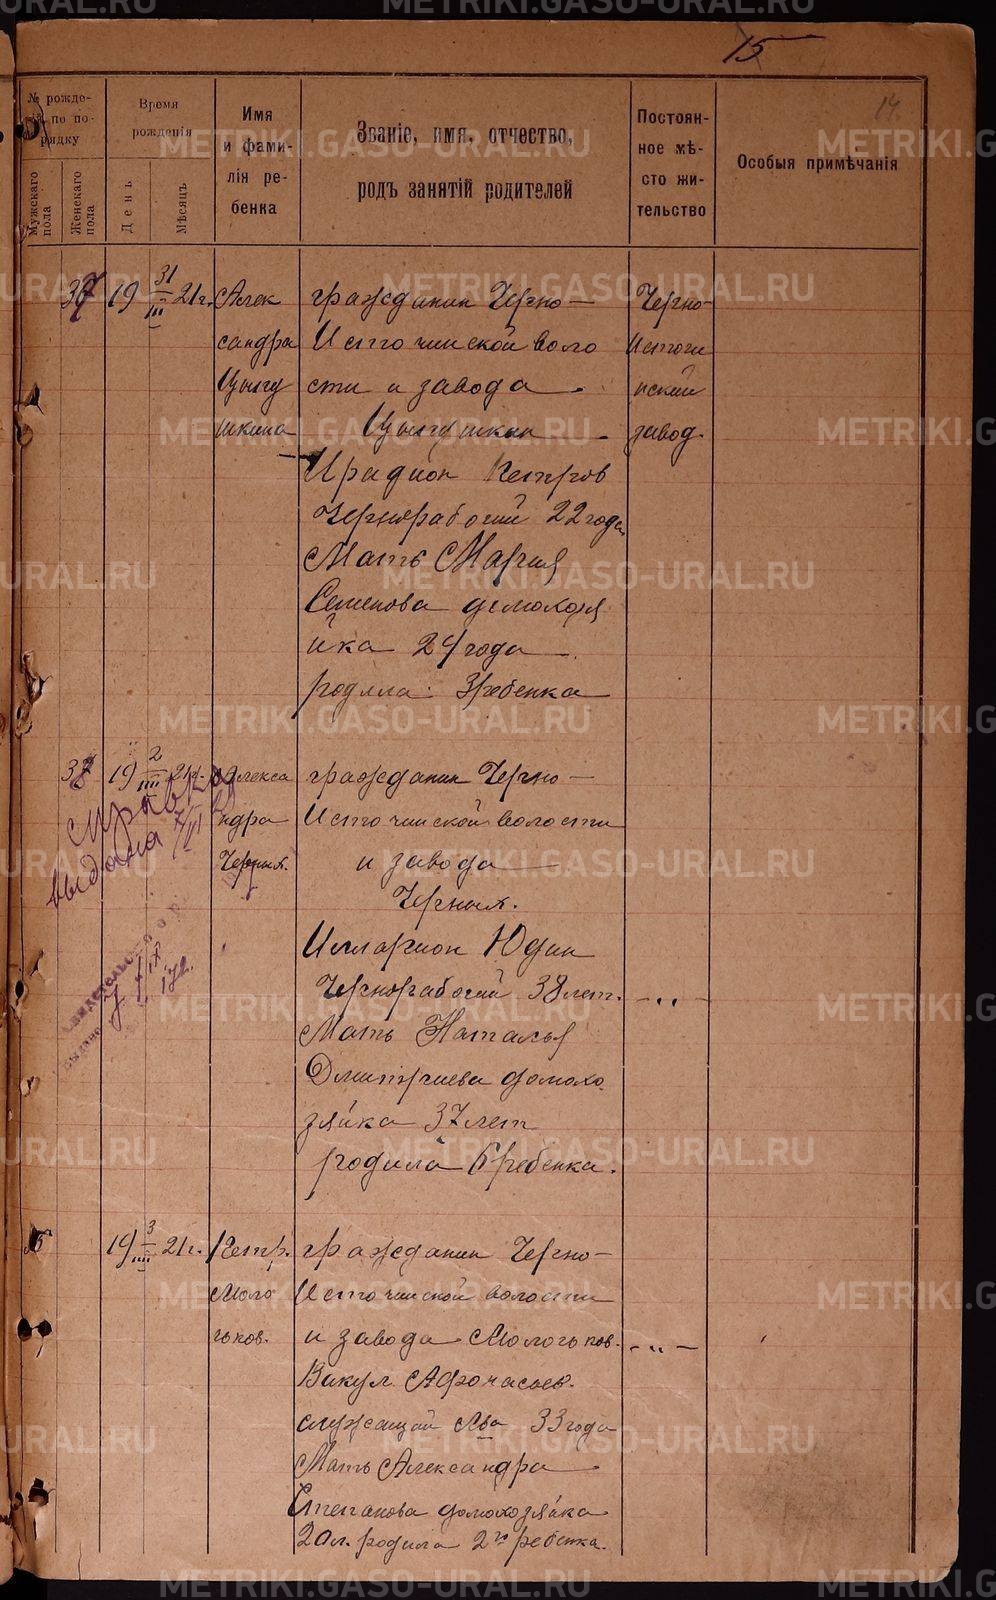 15
14.
№ рожде-
нія по по-
рядку
Мужскаго
пола
Женскаго
пола
Время
рожденія
День
Мѣсяцъ
Имя
и фами-
лія ре-
бенка
Званіе, имя, отчество,
родъ занятій родителей
Постоян-
ное мѣ-
сто жи-
тельство
Особыя примѣчанія
37
19 31/III 21г.
Алек
сандра
Цыгу
шкина
гражданин Черно-
Источинской воло
сти и завода
Цыгушкин
Ирадион Петров
Чернорабочий 22 года
Мать Мария
Семенова домохозя
йка 24 года
родила 3 ребенка
Черно-
Источи
нский
завод.
38
19 2/III 21г.
Алекса
ндра
Черных.
гражданин Черно-
Источинской волости
и завода
Черных.
Илларион Юдин
Чернорабочий 38 лет.
Мать Наталья
Дмитриева домохо
зяйка 37 лет
родила 6 ребенка.
-„-
справка
выдана
7/IX
17г.
15
19 3/III 21г.
Петр.
Моло
ньков.
гражданин Черно-
Источинской волости
и завода
Вакул Афонасьев.
служащий 33 года
Мать Александра
Степанова домохозяйка
20 л. родила 2го ребенка.
-„-
METRIKI.GASO-URAL.RU